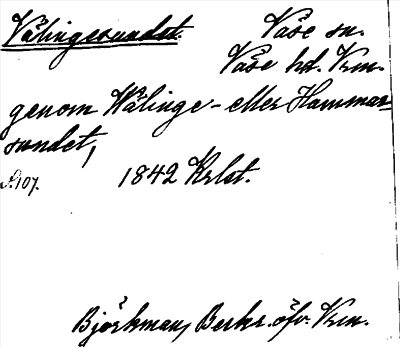 Välingesundet. Väse sn.
Väse hd. Vrm.
genom Wålinge- eller Hammar-
sundet,
S.107. 1842 Krlst.
Björkman, Beskr. öfv. Vrm.